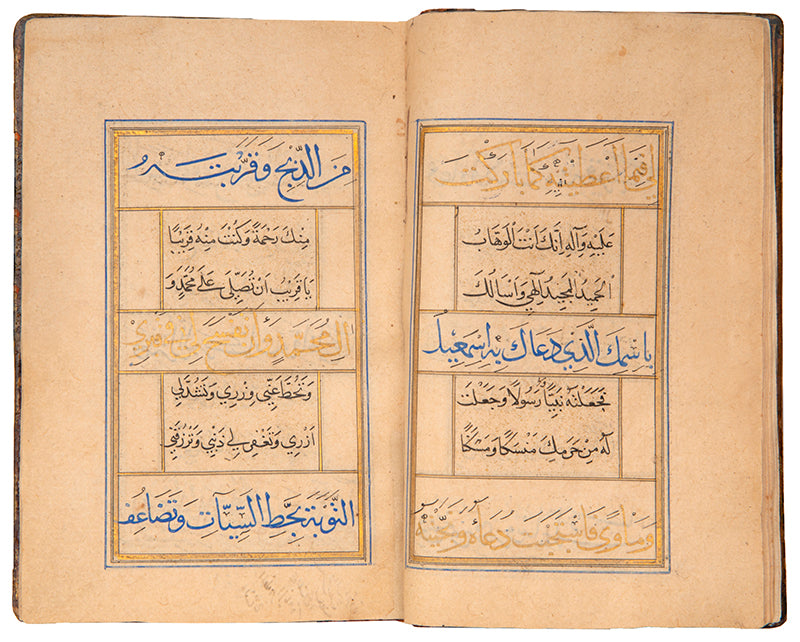 لي فيما اعطيتنيه كما باركت
عليه وآله انك انت الوهاب
الحميد المجيد الهي واسالك
باسمك الذي دعاك به اسمعيل
فجعلته نبيا رسولا وجعلت
له من حرمك منسكا ومسكنا
وماوى فاستجبت دعاه ونجيته
من الذبح وقربته
منك رحمة وكنت منه قريبا
يا قريب ان تصلي على محمد و
ال محمد وان تفسح لي في قبري
وتحط عني وزري وتشد لي
ازري وتغفر لي ذنبي وترزقني
التوبة بحط السيئات وتضاعف